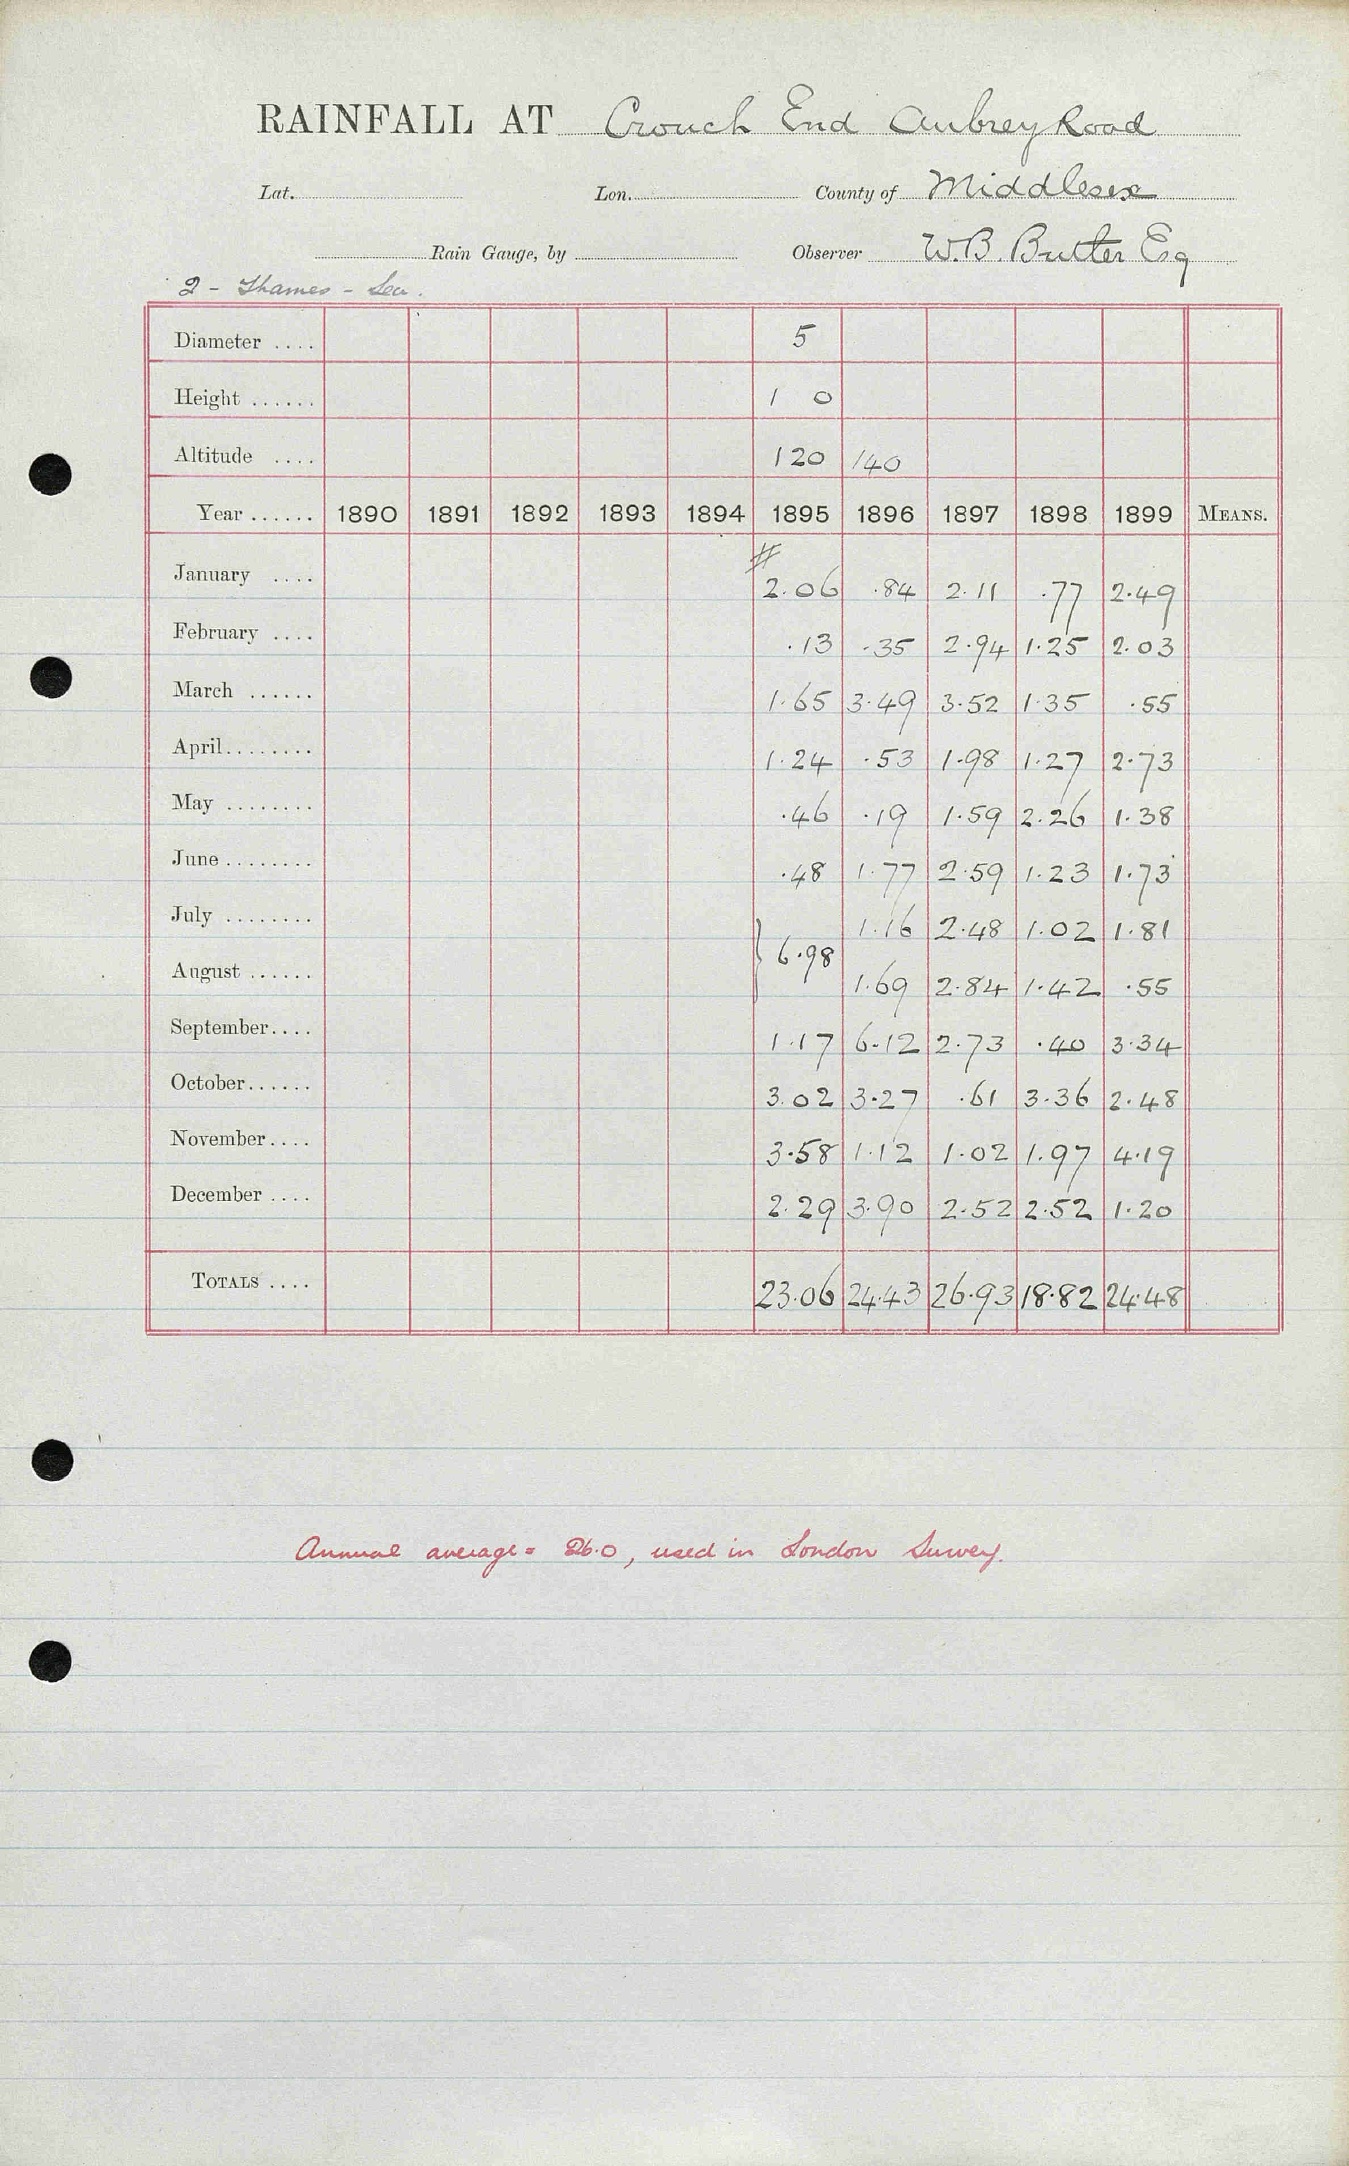 RAINFALL AT Crouch End Aubrey Road
Lat. Lon. County of Middlesex
Rain Gauge, by Observer W.B. Butler Esq
2 - Thames - Lea.
Diameter .... 5
Height ...... 1 0
Altitude .... 120 140
Year ...... 1890 1891 1892 1893 1894 1895 1896 1897 1898 1899 MEANS.
#
January .... 2.06 .84 2.11 .77 2.49
February .... .13 .35 2.94 1.25 2.03
March ...... 1.65 3.49 3.52 1.35 .55
April........ 1.24 .53 1.98 1.27 2.73
May ........ .46 .19 1.59 2.26 1.38
June ........ .48 1.77 2.59 1.23 1.73
July ........ } 6.98 1.16 2.48 1.02 1.81
August ...... 1.69 2.84 1.42 .55
September.... 1.17 6.12 2.73 .40 3.34
October...... 3.02 3.27 .61 3.36 2.48
November.... 3.58 1.12 1.02 1.97 4.19
December .... 2.29 3.90 2.52 2.52 1.20
TOTALS .... 23.06 24.43 26.93 18.82 24.48
Annual average = 26.0, used in London Survey.